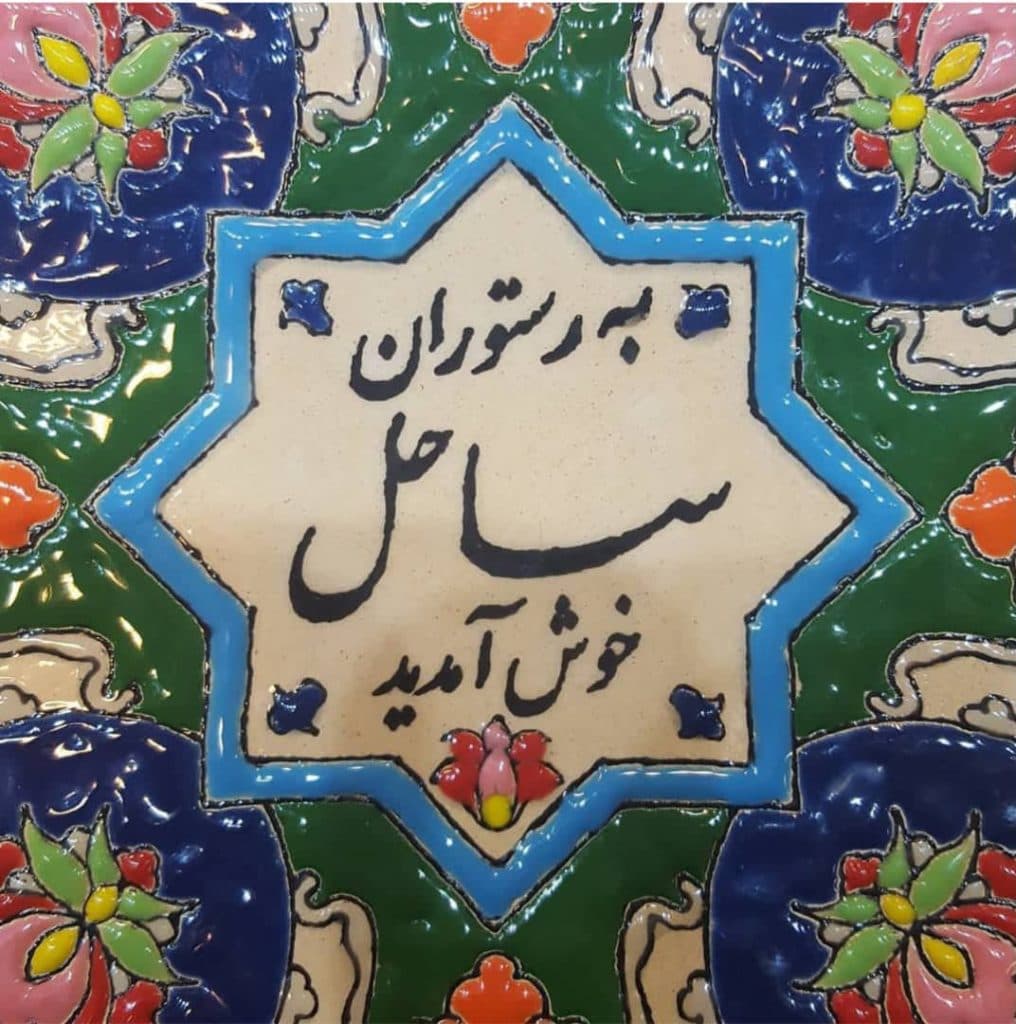 به رستوران
ساحل
خوش آمدید